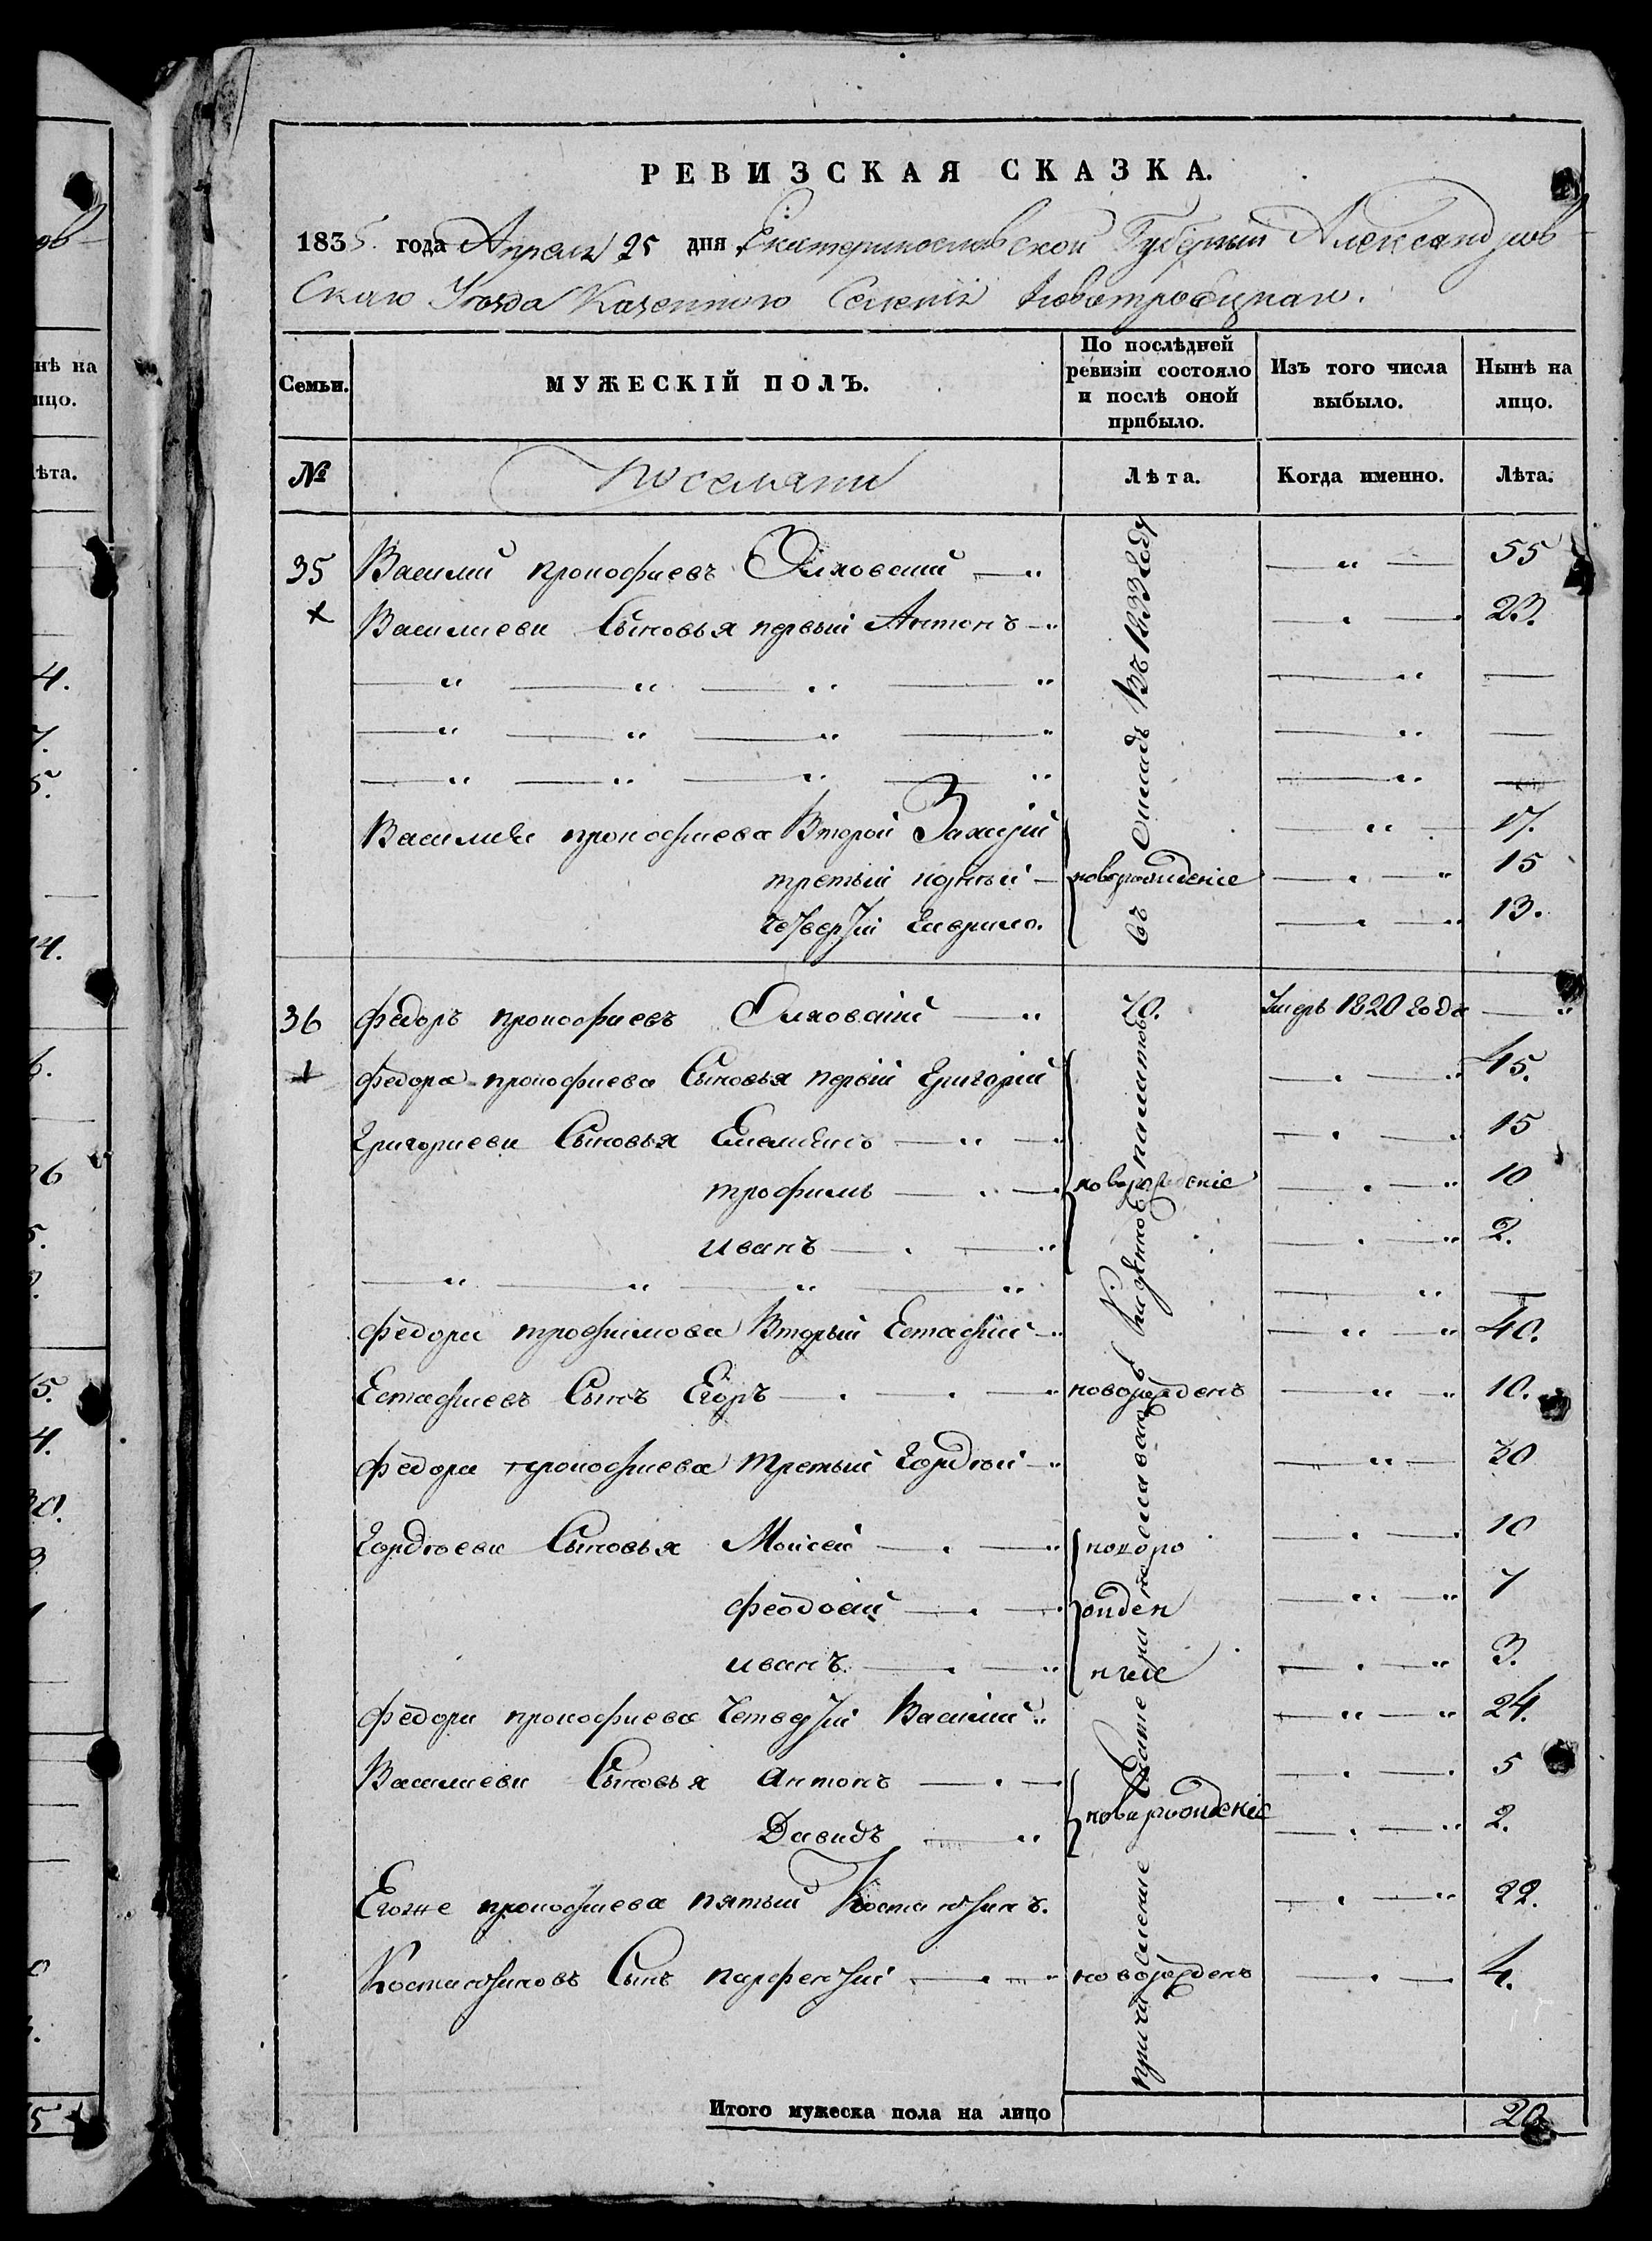 РЕВИЗСКАЯ СКАЗКА.
1835. года Апреля 25 дня Екатеринославской Губернии Александров
Скаго Уезда Казенного Селенія Новотроецкаго.
Семьи.
МУЖЕСКІЙ ПОЛЪ.
По послѣдней ревизіи состояло и послѣ оной прибыло.
Изъ того числа выбыло.
Нынѣ на лицо.
№
Поселяни
Лѣта.
Когда именно.
Лѣта.
35 Василий прокофиевъ Олховский — " — " — 55
Василиеви Сыновья первый Антонъ — " — 23.
Василия прокофиева Второй 17.
третьий — новорожденіе — 15
Гаврило. — 13.
съ въ 1833 году
36 федоръ прокофиевъ Олховский — " 70. Умеръ 1820 года — "
федора прокофиева Сыновья первій Григорій — 45.
Григориеви Сыновья Емелянъ — " — 15
трофимъ — новорожденіе — 10
иванъ — 2.
федора трофимова Вторый Естафий — 40.
Естафиевъ Сынъ Егоръ — новорожденъ — 10.
федора прокофиева третьий Гордѣй — 30
Гордѣеви Сыновья Моисей — новоро — 10
феодосий — жден — 7
иванъ — ние — 3.
федора прокофиева Четвертій Василий — 24.
Василиеви Сыновья антонъ — 5
Давидъ — новорожденіе — 2.
Егоже прокофиева пятый Костантинъ. — 22.
Костантиновъ Сынъ парфентий — новорожденъ — 4.
Итого мужеска пола на лицо 20